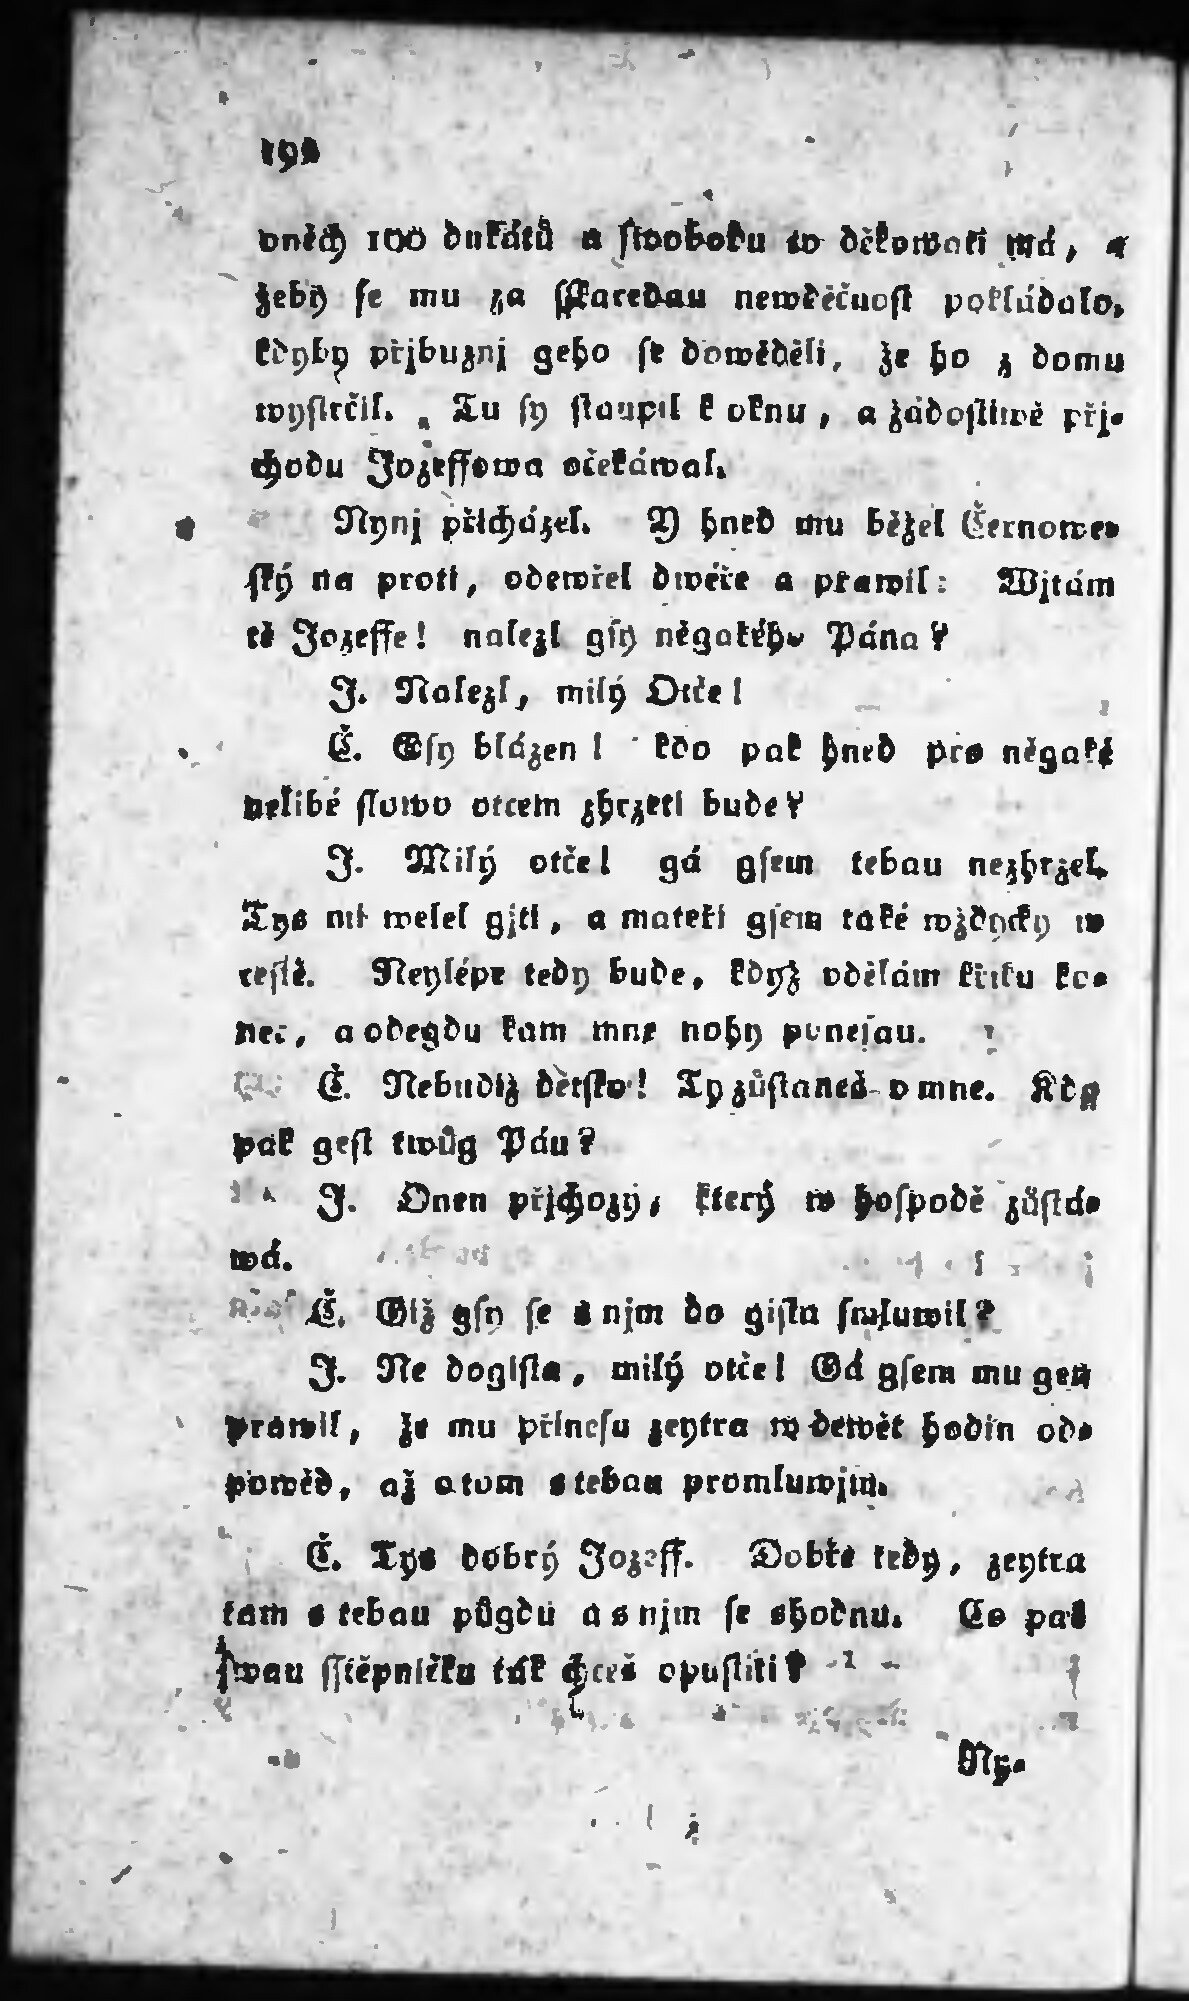 oněch 100 dukátů a swobodu to děkowati má, a
žeby se mu za sskaredau newděčnost pokládalo,
kdyby přjbuznj geho se dowěděli, že ho z domu
wystrčil. Tu sy staupil k oknu, a žádostiwě přj-
chodu Jozeffowa očekáwal.
Nynj přicházel. Y hned mu běžel Černowe-
ský na proti, odewřel dwéře a prawil: Wjtám
tě Jozeffe! nalezl gsy něgakého Pána?
J. Nalezl, milý Otče!
Č. Gsy blázen! kdo pak hned pro něgaké
nelibé slowo otcem zhrzeti bude?
J. Milý otče! gá gsem tebau nezhrzel.
Tys mi welel gjti, a mateři gsem také wždycky w
cestě. Neylépe tedy bude, když vdělám křiku ko-
nec, a odegdu kam mne nohy ponesau.
Č. Nebudiž dětsko! Ty zůstaneš v mne. Kdo
pak gest twůg Pán?
J. Onen přjchozy, který w hospodě zůstá-
wá.
Č. Giž gsy se s njm do gista smluwil?
J. Ne dogista, milý otče! Gá gsem mu gen
prawil, že mu přinesu zeytra w dewět hodin od-
powěd, až o tom s tebau promluwjm.
Č. Tys dobrý Jozeff. Dobře tedy, zeytra
tam s tebau půgdu a s njm se shodnu. Co pak
swau sstěpničku tak chceš opustiti?
Ny-